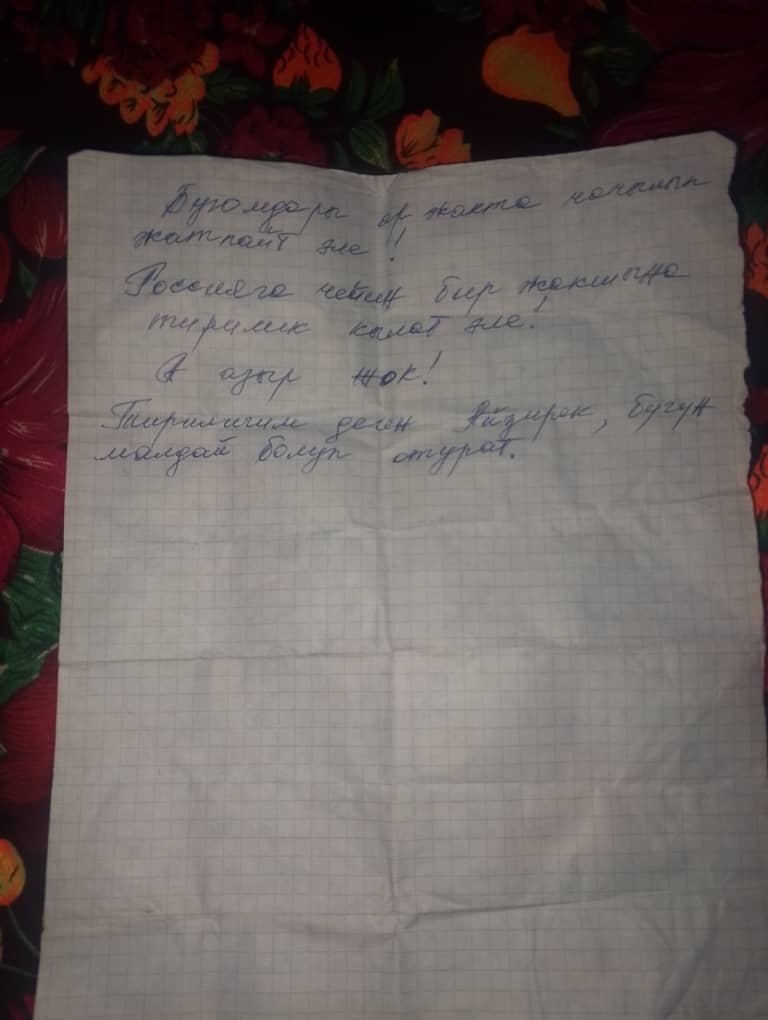 Буюмдары ар жакта чачылып
жатпайт эле!
Россияга чейин бир жакшына
тиричилик кылат эле!
А азыр жок!
Тиричилигим деген Айзирек, бүгүн
малдай болуп отурат.